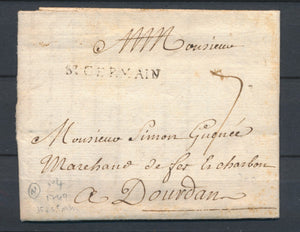 Monsieur
ST GERMAIN
7
Monsieur Simon Guquée
Marchand de fer le charbon
a Dourdan